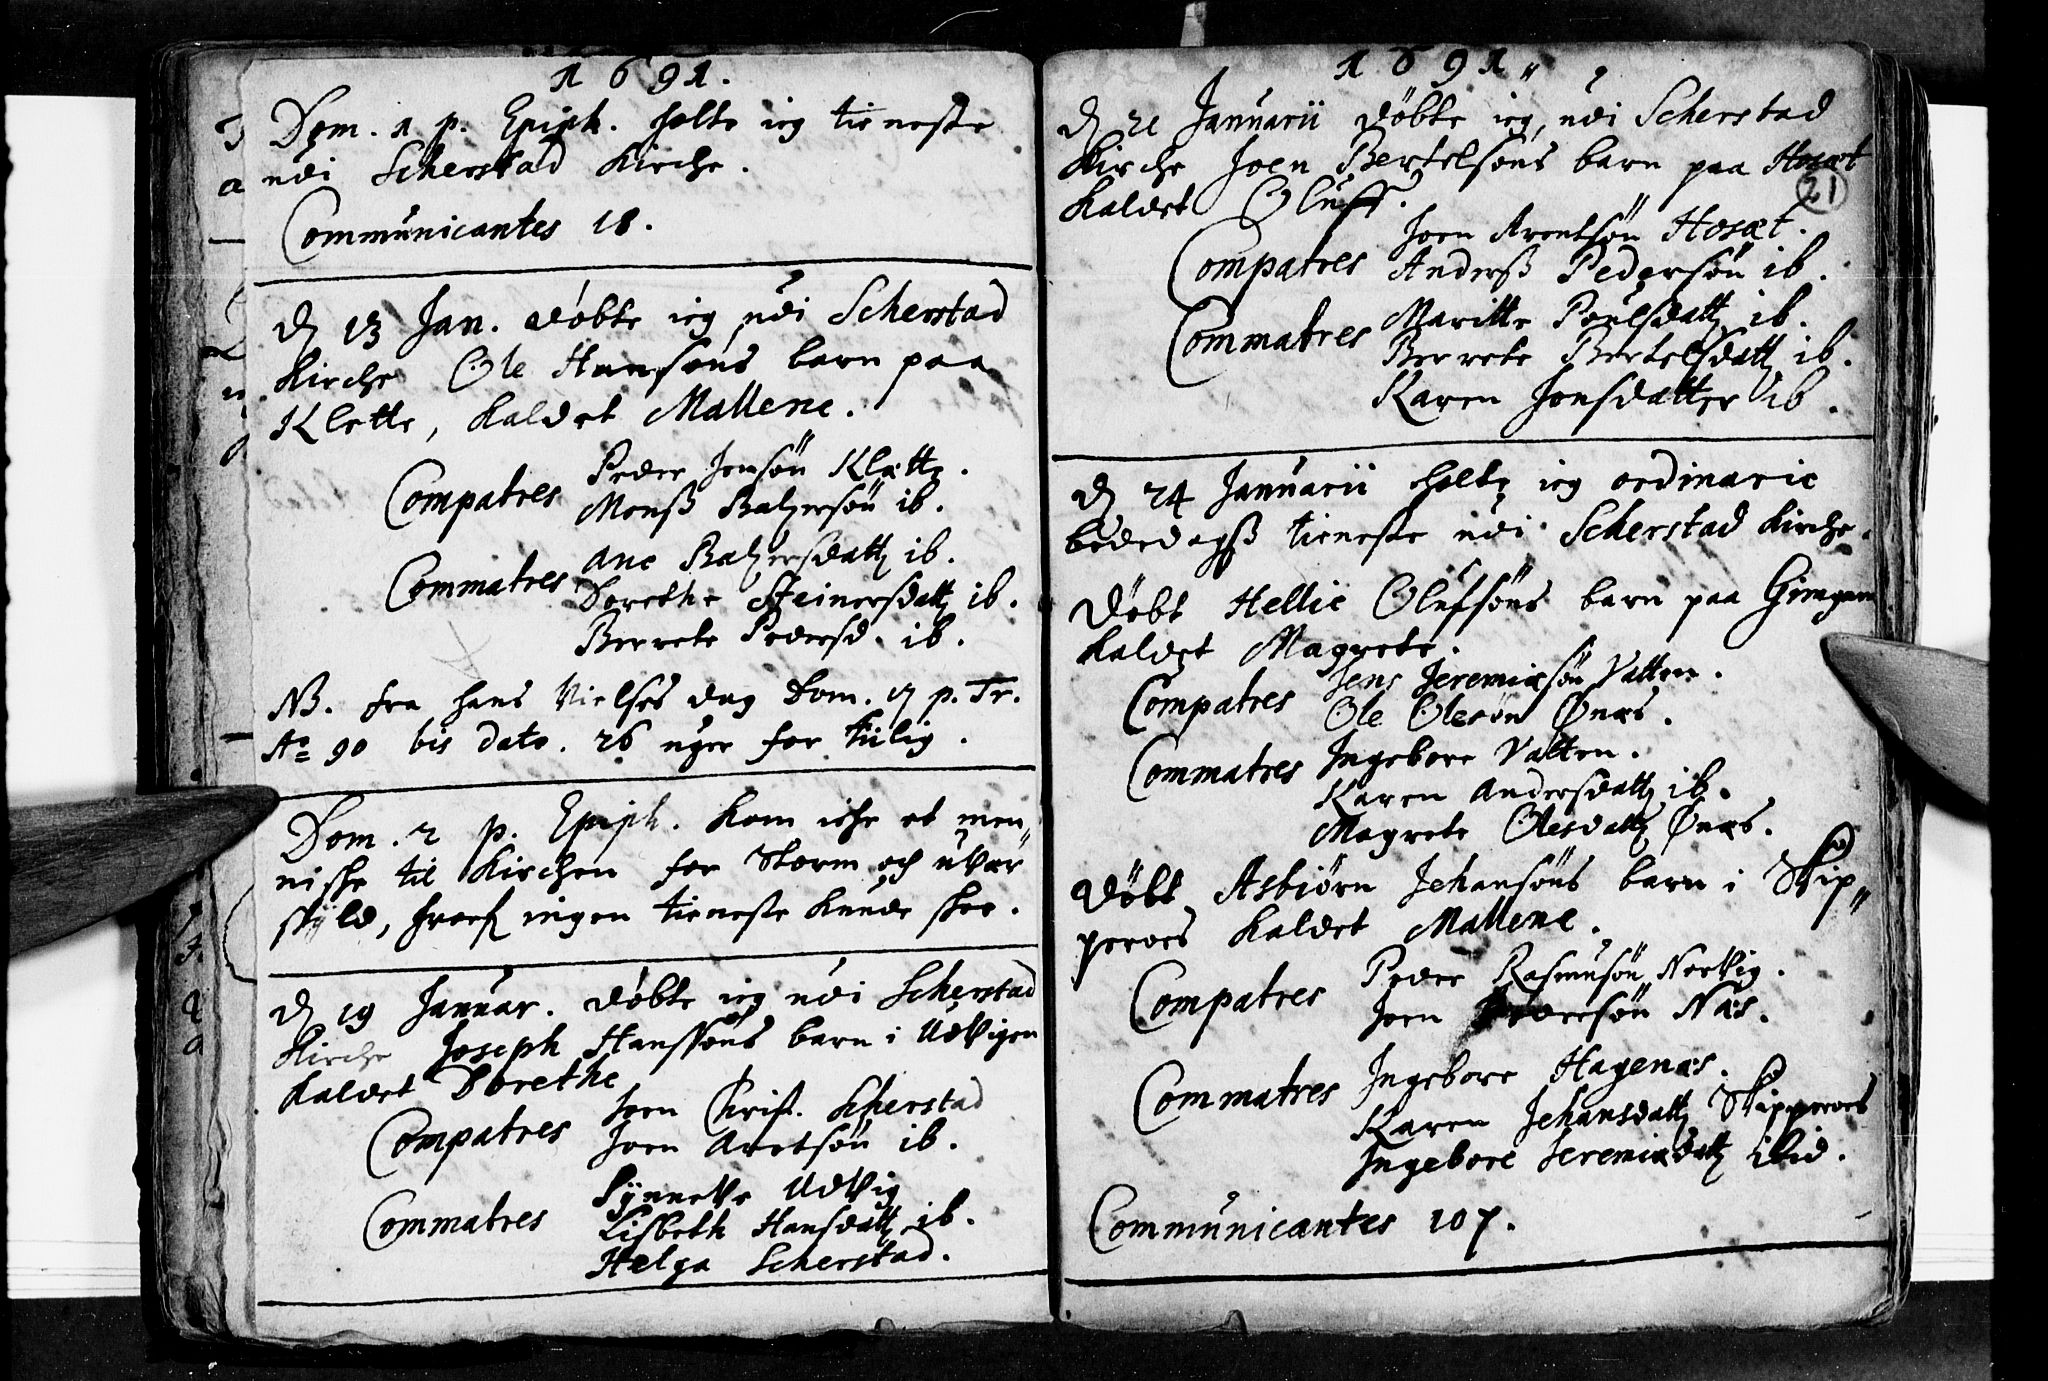 1691.
Dom. 1 p. Epiph. holte ieg tieneste
udi Scherstad Kirche.
Communicantes 18.
D 13 Jan. døbte ieg udi Scherstad
Kirche Ole Hansøns barn paa
Klette, kaldet Mallene.
Compatres
Peder Jensøn Klette.
Monß Baltzersøn ib.
Commatres
Ane Baltzersdatt ib.
Dorethe Steinersdatt ib.
Berrete Pedersd. ib.
NB. fra hans Vielses dag Dom. 17 p. Tr.
Ao 90 bis dato. 26 uger for tiilig.
Dom. 2 p. Epiph. kom iche et men„
nische til Kirchen for Storm och uvær
skyld, hvorf ingen tieneste kunde skee.
D 19 Januar. døbte ieg udi Scherstad
Kirche Joseph Hanssøns barn i Udvigen
kaldet Dorethe
Compatres
Joen Christ. Scherstad
Joen Arntsøn ib.
Commatres
Synneve Udvig
Lisbeth Hansdatt ib.
Helga Scherstad.
1691„
D 21 Januarii døbte ieg, udi Scherstad
Kirche Joen Bertelsøns barn paa Hosæt
kaldet Oluff.
21
Compatres
Joen Arentsøn Hosæt.
Anderß Pedersøn ib.
Commatres
Maritte Poulsdatt ib.
Berrete Bertelsdatt ib.
Karen Jonsdatter ib.
D 24 Januarii holte ieg ordinarie
bededagß tieneste udi Scherstad Kirche.
Døbt Hellie Olufsøns barn paa
kaldet Magrete.
Compatres
Jens Jeremiæsøn Vatten.
Ole Olesøn Ønæs.
Commatres
Ingebore Vatten.
Karen Andersdatt ib.
Magrete Olesdatt Ønæs.
Døbt Asbiørn Jehansøns barn i Skip„
peroes kaldet Mallene.
Compatres
Peder Rasmusøn Norvig.
Joen Pedersøn Næs.
Commatres
Ingebore Hagenæs.
Karen Jehansdatt Skipperoes
Ingebore Jeremiædatt ibid.
Communicantes 107.